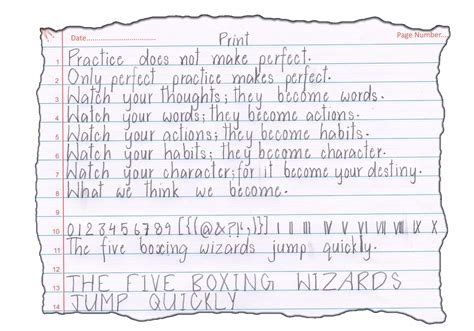 Date........................ Page Number...
Print
1 Practice does not make perfect.
2 Only perfect practice makes perfect.
3 Watch your thoughts; they become words.
4 Watch your words; they become actions.
5 Watch your actions; they become habits.
6 Watch your habits; they become character.
7 Watch your character; for it become your destiny.
8 What we think we become.
9
10 0 1 2 3 4 5 6 7 8 9 [{(@&?!‘,)}] I II III IV V VI VII VIII IX X
11 The five boxing wizards jump quickly.
12
13 THE FIVE BOXING WIZARDS
14 JUMP QUICKLY